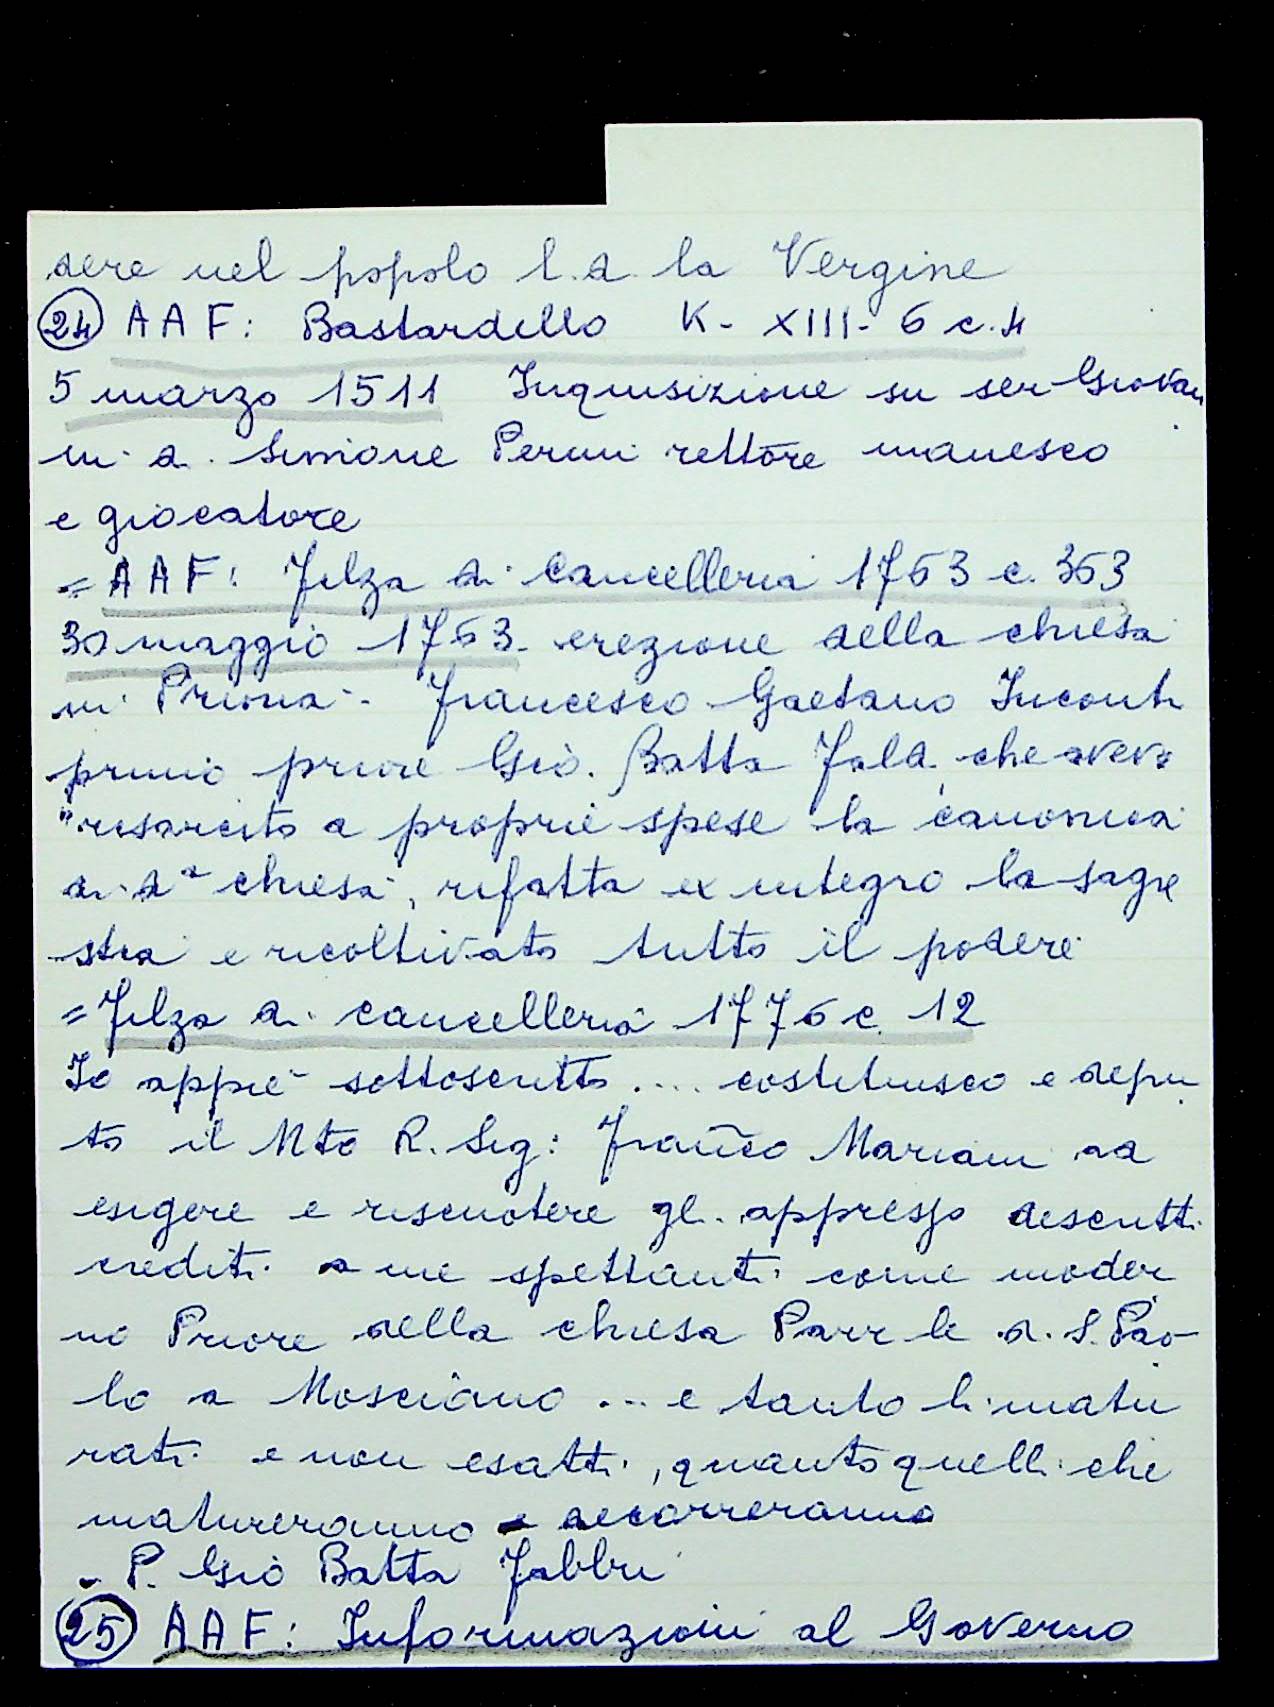 dere nel popolo l.d. la Vergine
24 AAF: Bastardello K- XIII- 6 c. 4
5 marzo 1511 Inquisizione su ser Giovan
ni d. Simone Perini rettore manesco
e giocatore
= AAF: Filza di Cancelleria 1763 c. 363
30 maggio 1763. erezione della chiesa
in Prioria - Francesco Gaetano Incontri
primo priore Gio. Batta che aveva
"risarcito a proprie spese la canonica
di da chiesa, rifatta ex integro la sagre
stia e ricoltivato tutto il podere
= Filza di cancelleria 1776 c. 12
Io appiè sottoscritto .... costituisco e depu
to il Mto R. Sig: Franco Mariani ad
esigere e riscuotere gli appresso descritti
crediti a me spettanti come moder
no Priore della chiesa Parrle di S. Pao-
lo a Mosciano ... e tanto li matu
rati e non esatti, quanto quelli che
matureranno e decorreranno
- P. Gio Batta Fabbri
25 AAF: Informazioni al Governo